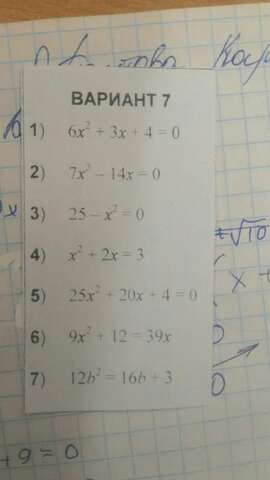 ВАРИАНТ 7
1) 6x² + 3x + 4 = 0
2) 7x² – 14x = 0
3) 25 – x² = 0
4) x² + 2x = 3
5) 25x² + 20x + 4 = 0
6) 9x² + 12 = 39x
7) 12b² = 16b + 3
+√10
x +
+ 9 = 0